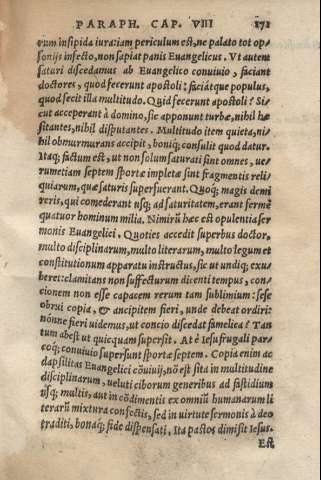 PARAPH. CAP. VIII 171
rum insipida iura, iam periculum est, ne palato tot op-
sonijs infecto, non sapiat panis Euangelicus. Vt autem
saturi discedamus ab Euangelico conuiuio, faciant
doctores, quod fecerunt apostoli: faciat que populus,
quod fecit illa multitudo. Quid fecerunt apostoli? Si-
cut acceperant à domino, sic apponunt turbæ, nihil hæ
sitantes, nihil disputantes. Multitudo item quieta, ni-
hil obmurmurans accipit, boniq; consulit quod datur.
Itaq; factum est, ut non solum saturati sint omnes, ue-
rumetiam septem sportæ impletæ sint fragmentis reli-
quiarum, quæ saturis superfuerant. Quoq; magis demi
reris, qui comederant usq; ad saturitatem, erant fermè
quatuor hominum milia. Nimirũ hæc est opulentia ser
monis Euangelici. Quoties accedit superbus doctor,
multo disciplinarum, multo literarum, multo legum et
constitutionum apparatu instructus, sic ut undiq; exu-
beret: clamitans non suffecturum dicenti tempus, con-
cionem non esse capacem rerum tam sublimium: sese
obrui copia, & ancipitem fieri, unde debeat ordiri:
nónne fieri uidemus, ut concio discedat famelica? Tan
tum abest ut quicquam supersit. At è Iesu frugali par-
coq; conuiuio supersunt sportæ septem. Copia enim ac
dapsilitas Euangelici cõuiuij, nõ est sita in multitudine
disciplinarum, ueluti ciborum generibus ad fastidium
usq; multis, aut in cõdimentis ex omniũ humanarum li
terarũ mixtura confectis, sed in uirtute sermonis à deo
traditi, bonaq; fide dispensati. Ita pastos dimisit Iesus.
Est